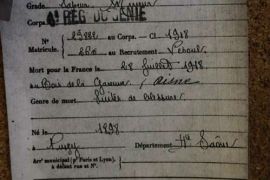 Grade Sapeur Mineur
Corps 4e RÉG. DU GÉNIE
No 29882 au Corps. — Cl. 1918
Matricule. 268 au Recrutement Vesoul
Mort pour la France le 28 Juillet 1918
au Bois de la Garenne, Aisne
Genre de mort Suites de blessures
Né le 1898
à Département Hte Saône
Arrt municipal (pr Paris et Lyon),
à défaut rue et No.